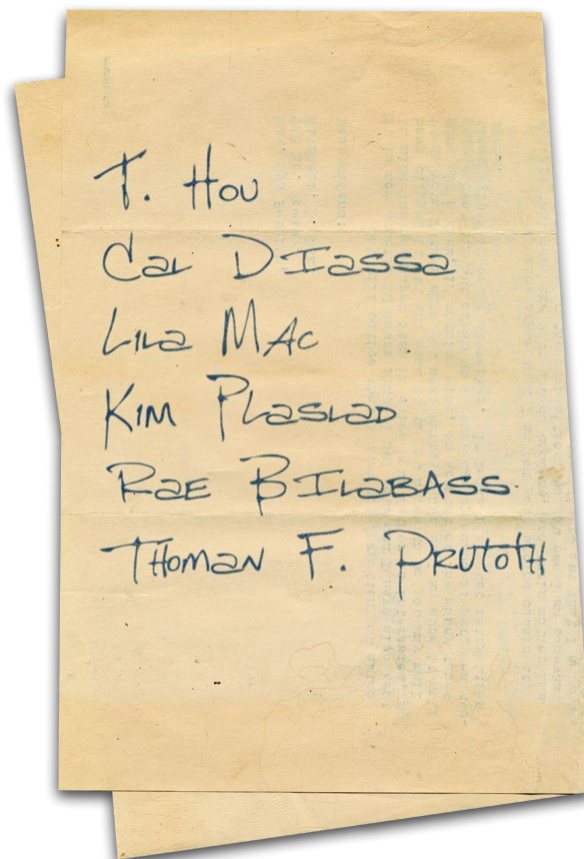 T. Hou
Cal Diassa
Lila Mac
Kim Plaslad
Rae Bilabass
Thoman F. Prutoth